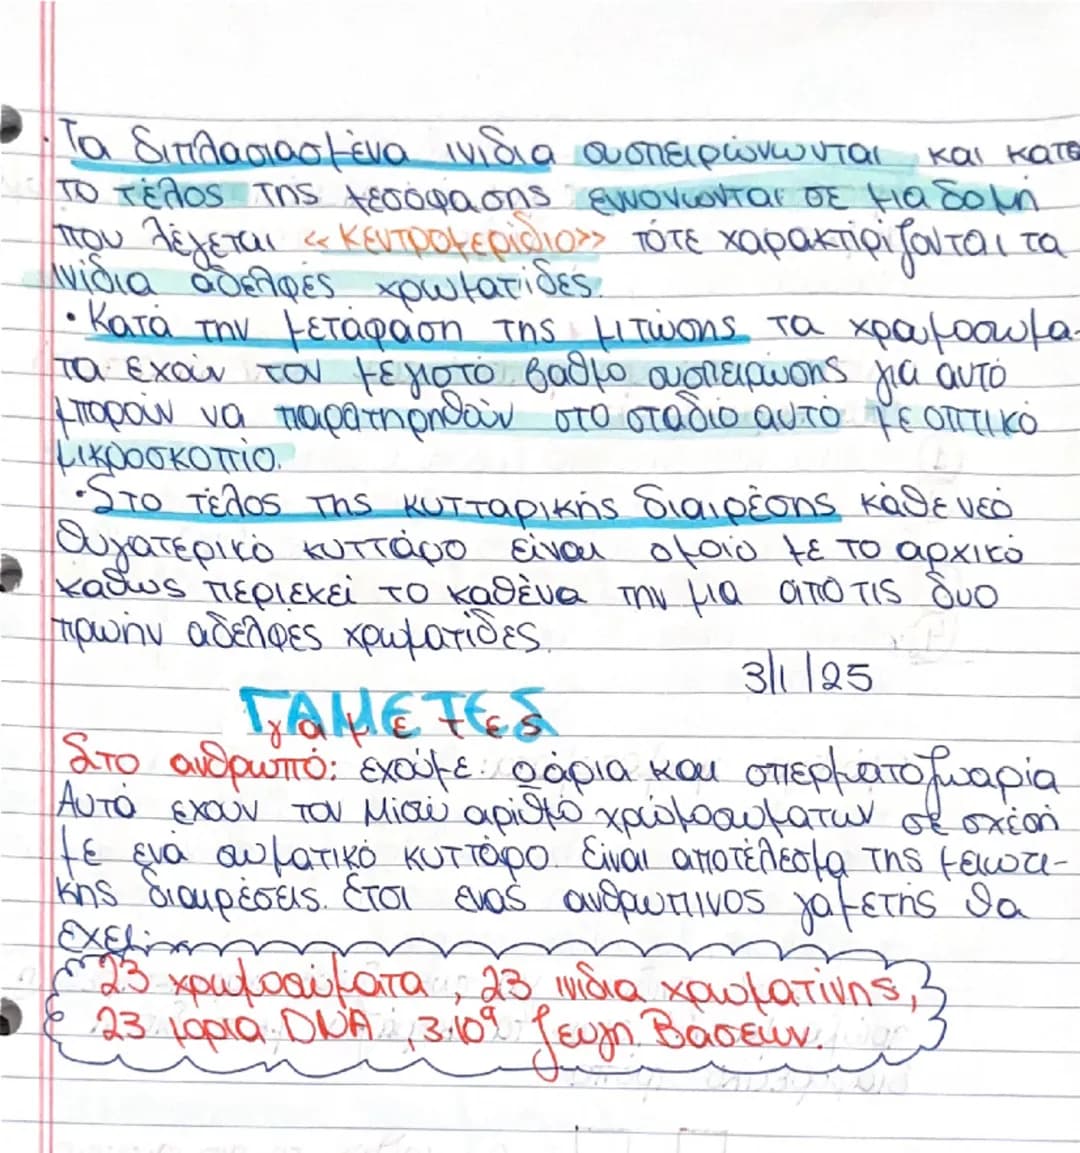 · Τα διπλασιασμένα ινίδια συσπειρώνωνται και κατα
το τέλος της μεσόφασης ενώνωνται σε μια δομή
που λέγεται «κεντρομερίδιο» τότε χαρακτιρίζονται τα
ινίδια αδελφές χρωματίδες.
· Κατά την μετάφαση της μιτώσης τα χρωμοσωμα-
τα έχουν τον μέγιστο βαθμο συσπειρωσης για αυτό
μπορούν να παρατηρηθούν στο σταδιο αυτό με οπτικό
μικροσκοπιο.
· Στο τέλος της κυτταρικής διαιρέσης κάθε νεό
θυγατερικό κυττάρο είναι ομοιό με το αρχικό
καθως περιεχει το καθένα την μια από τις δυο
πρωην αδελφές χρωματίδες.
3/1/25
ΓΑΜΕΤΕΣ
γαμετες
Στο ανθρωπό: εχούμε: ωάρια και σπερματοζωαρία
Αυτά εχουν τον μισό αριθμό χρωμοσωματων σε σχέση
με ενα σωματικό κυττάρο. Είναι αποτέλεσμα της μειωτι-
κής διαιρέσεις. Έτσι ενας ανθρωπινος γαμετης θα
εχει:
23 χρωμοσώματα, 23 ινιδια χρωματίνης,
23 μορια DNA, 3·10⁹ ζευγη Βασεων.